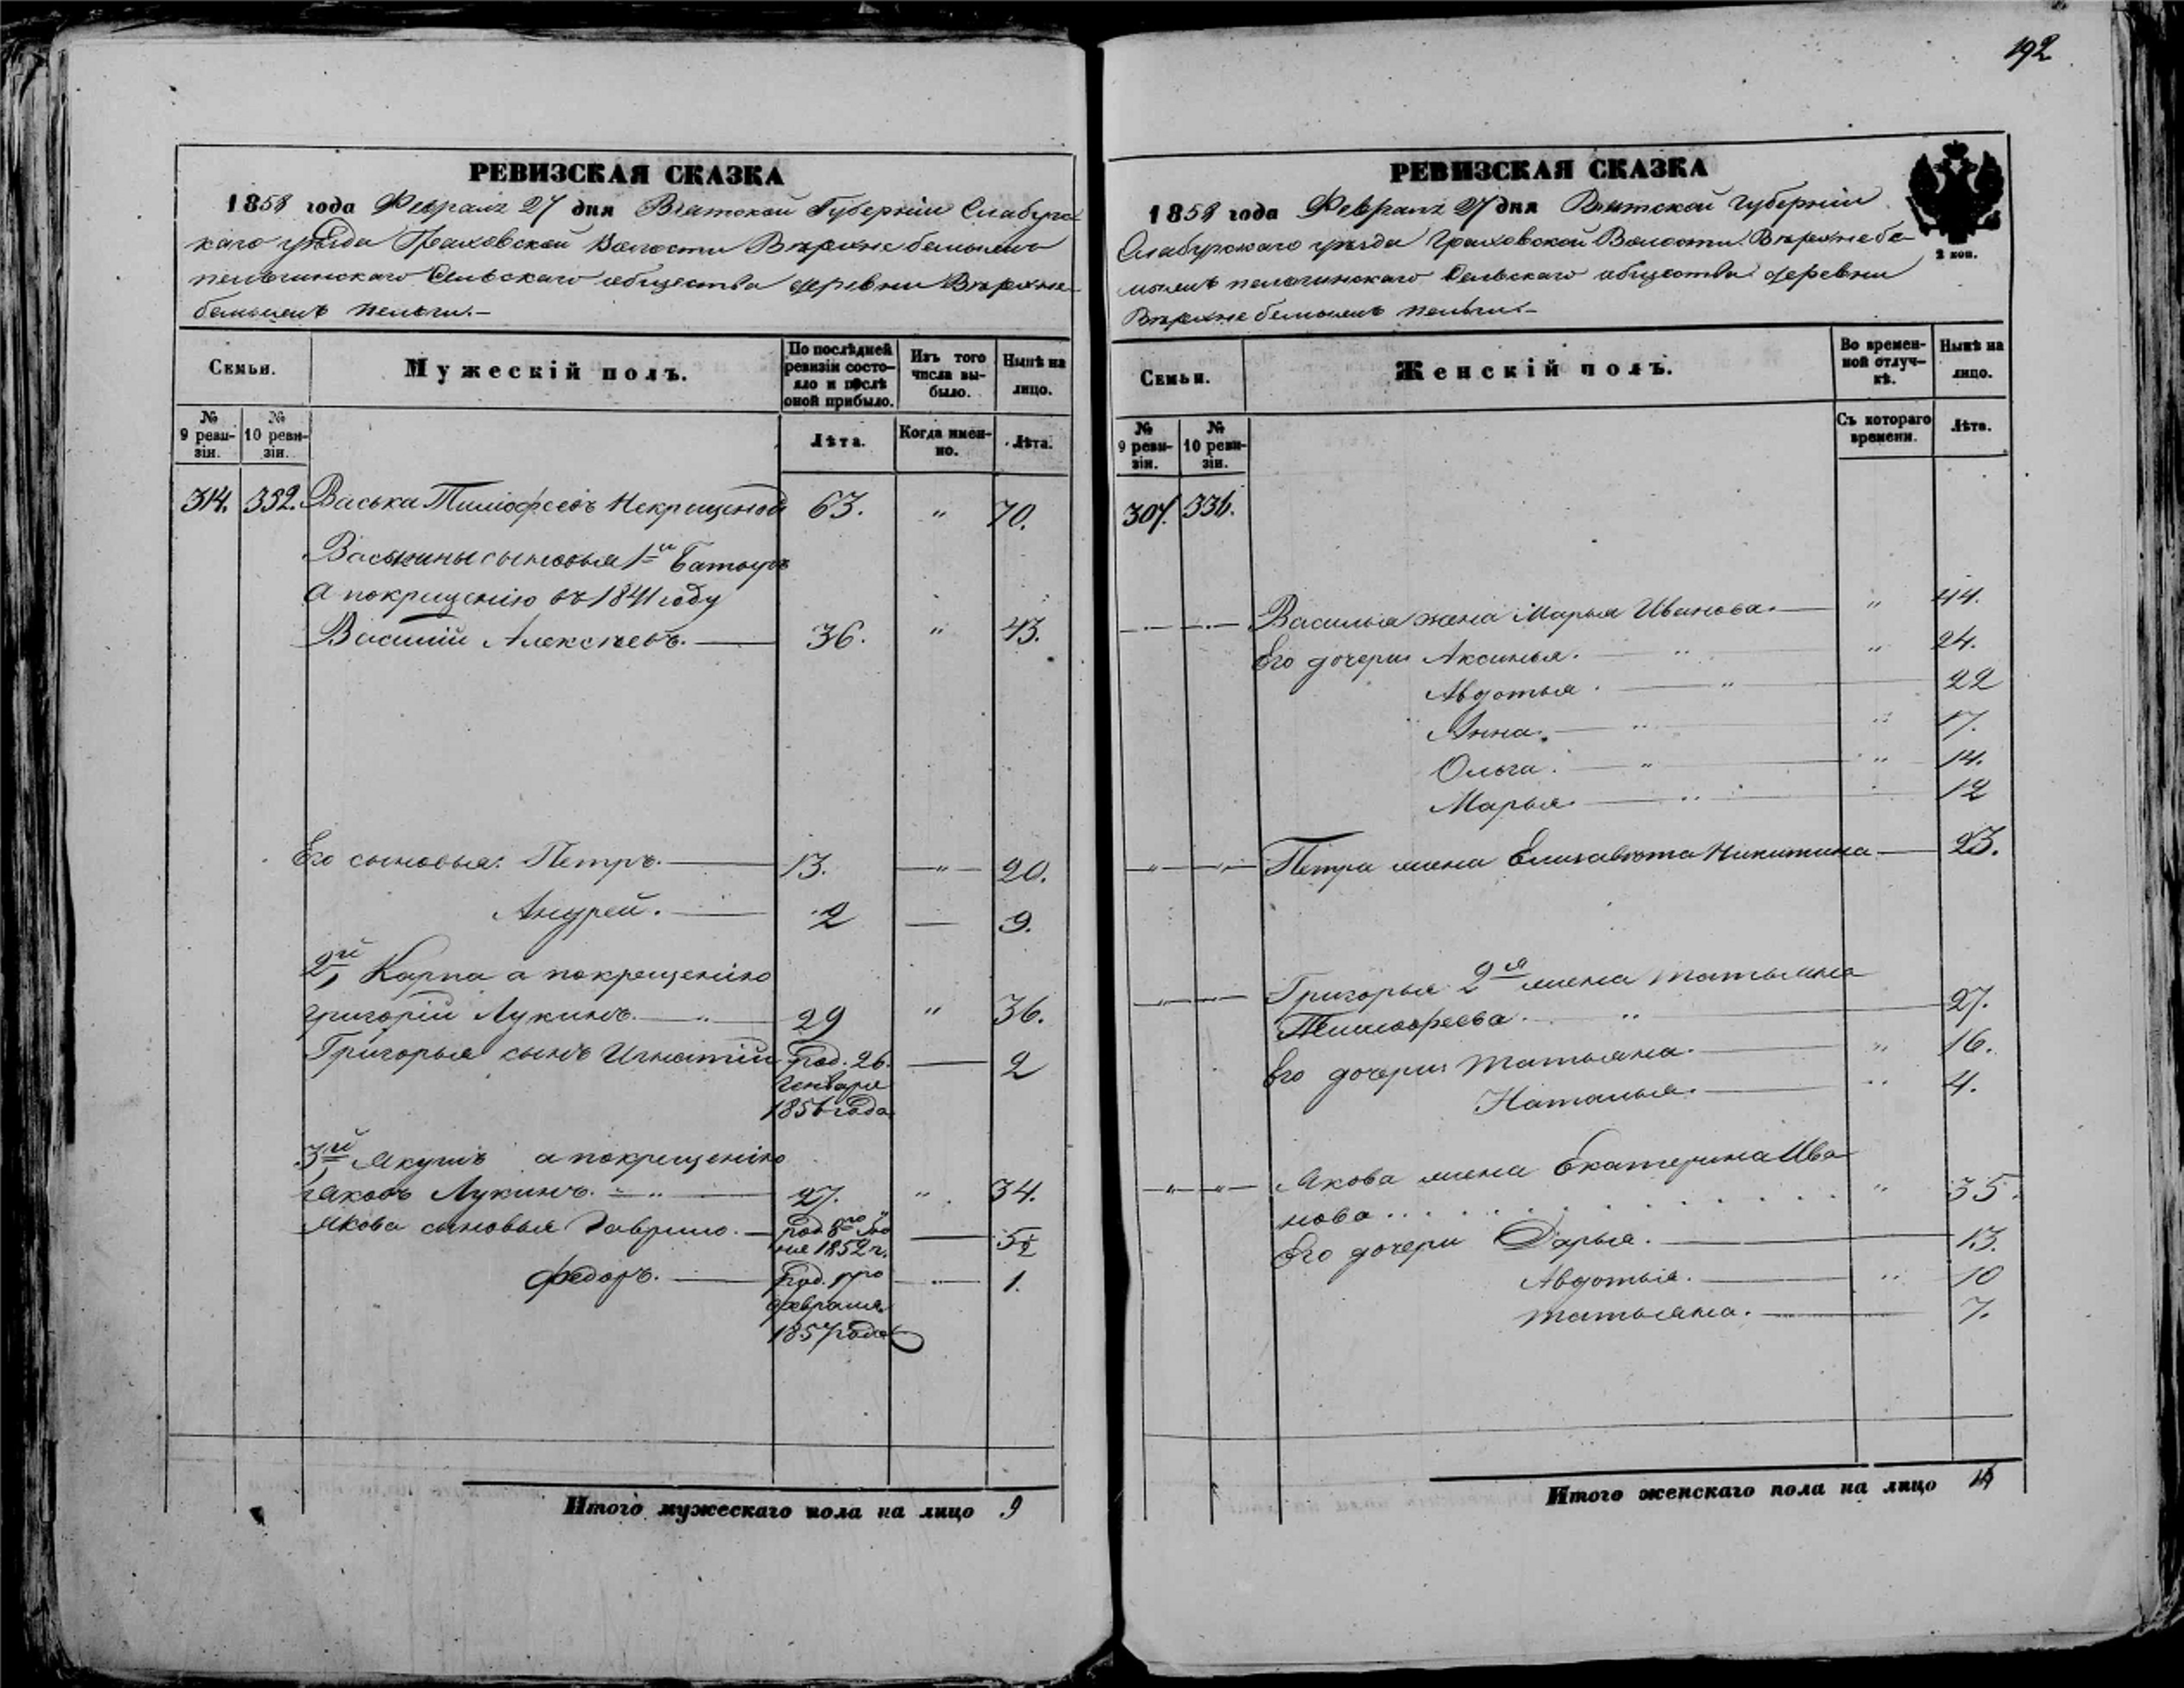 192
РЕВИЗСКАЯ СКАЗКА
1858 года Февраля 27 дня Вятской Губерніи Елабужс
каго уѣзда Граховской Волости
Сельскаго общества деревни Верхне
Семьи.
Мужескій полъ.
По послѣдней ревизіи состояло и послѣ оной прибыло.
Изъ того числа выбыло.
Нынѣ на лицо.
№ 9 ревизіи.
№ 10 ревизіи.
Лѣта.
Когда именно.
Лѣта.
314. 332. Васька Тимофеевъ Некрещеной 63. " 70.
Васькины сыновья 1й
а покрещенію въ 1841 году
Василій Алексѣевъ. 36. " 43.
Его сыновья: Петръ. 13. " 20.
Андрей. 2 9.
2й Карпа а покрещенію
Григорій Лукинъ. " 29 " 36.
Григорья сынъ Игнатій род. 26. 2
Генваря
1856 года
3й Якушъ а покрещенію
Яковъ Лукинъ. " 27. " 34.
Якова сыновья Гаврило. 5½
1852 г.
Федоръ. род. 1.
февраля
1857 года
Итого мужескаго пола на лицо 9
РЕВИЗСКАЯ СКАЗКА
1858 года Февраля 27 дня Вятской Губерніи
2 коп.
уѣзда Граховской Волости
Сельскаго общества деревни
Семьи.
Женскій полъ.
Во временной отлучкѣ.
Нынѣ на лицо.
№ 9 ревизіи.
№ 10 ревизіи.
Съ котораго времени.
Лѣта.
307. 331.
Василья жена Марья Иванова. " 44.
Его дочери Аксинья. " " 24.
Авдотья. " 22
Анна. " " 17.
Ольга. " " 14.
Марья. " 12
" " Петра жена Елизавета Никитина 23.
" Григорья 2я жена Татьяна
Тимофеева. " 27.
Его дочери Татьяна. " 16.
Наталья. " 4.
" " Якова жена Екатерина Ива
нова " 35.
Его дочери Дарья. 13.
Авдотья. " 10
Татьяна. 7.
Итого женскаго пола на лицо